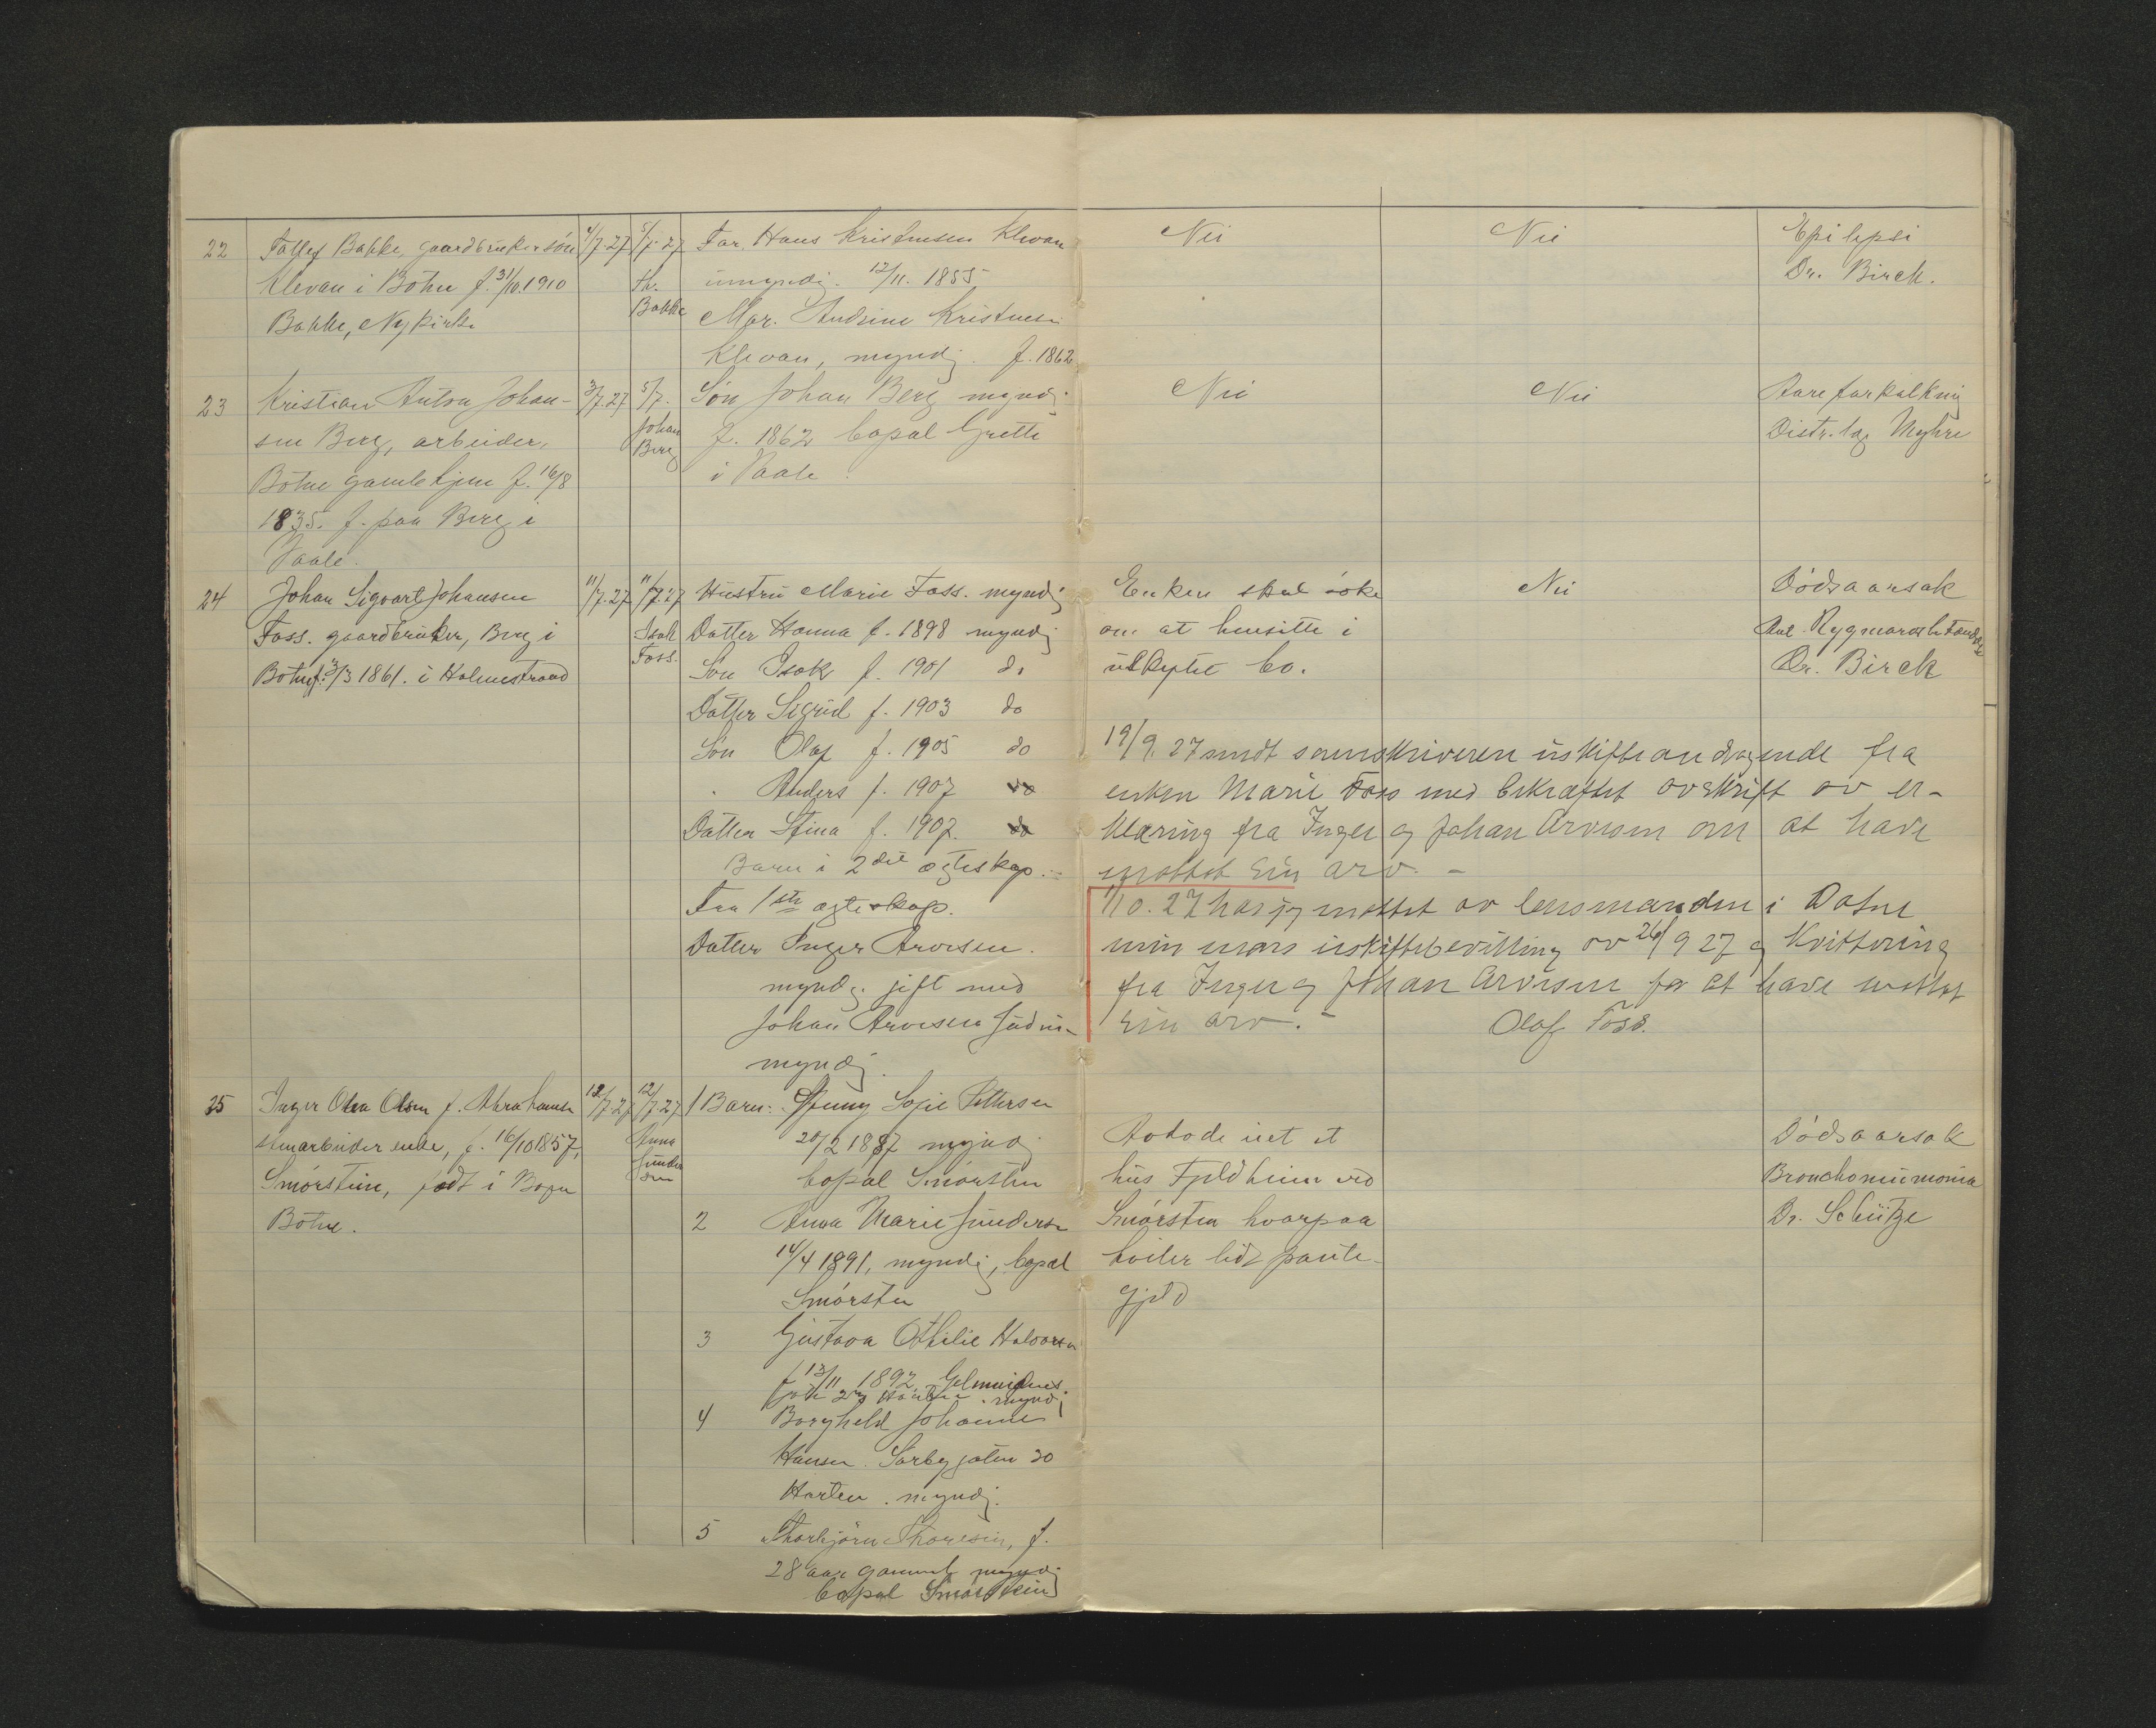 22 Tollef Bakke, gaardbrukersön 4/7-27 5/7-27 Far. Hans Kristensen Klevan Nei Nei Epilepsi
Klevan i Botne f. 31/10.1910 Th. umyndig. 12/11. 1855 Dr. Birck.
Bakke, Nykirke Bakke Mor. Andrine Kristensen
Klevan, myndig. f. 1862
23 Kristian Anton Johan- 3/7.27 5/7. Sön Johan Berg myndig Nei Nei Aareforkalkning
sen Berg, arbeider, Johan f. 1862 bopal Grette Distr.læg Myhre
Botne gamlehjem f. 16/8 Berg i Vaale.
1835. f. paa Berg i
Vaale.
24 Johan Sigvart Johansen 11/7.27 11/7.27 Hustru Marie Foss. myndig Enken skal söke Nei Dödsaarsak
Foss. gaardbruker, Berg i Isak Datter Hanna f. 1898 myndig om at hensitte i Ant. Rygmarvsbetændelse
Botne f. 3/3 1861. i Holmestrand Foss. Sön Isak f. 1901 do uskiftet bo. Dr. Birck
Datter Sigrid f. 1903 do
Sön Olaf f. 1905 do 19/9.27 sendt sorenskriveren uskifteandragende fra
" Anders f. 1907 do enken Marie Foss med bekræftet avskrift av er-
Datter Stina f. 1907. do klæring fra Inger og Johan Arvesen om at have
Barn i 2det ægteskap. mottat sin arv. -
Fra 1ste ægteskap. 1/10.27 har jeg mottat av lensmanden i Botne
Datter Inger Arvesen. min mors uskiftebevilling av 26/9 27 og Kvittering
myndig. gift med fra Inger og Johan Arvesen for at have mottat
Johan Arvesen sin arv. - Olaf Foss.
myndig.
25 Inger Olea Olsen f. Abrahamsen 12/7.27 12/7.27 1 Barn: Jenny Sofie Pettersen
stenarbeider enke, f. 16/10 1857, Anna 20/2 1887 myndig Avdöde eiet et Dödsaarsak
Smörstein, födt i Bogen Gundersen bopal Smörsten hus Fjeldheim ved Bronchopneumonia
Botne. 2 Anna Marie Gundersen Smörsten hvorpaa Dr. Schütze
14/4 1891, myndig, bopal hviler lidt pante-
Smörsten gjeld
3 Gustava Othilie Halvorsen
f 13/11 1892
myndig
4 Borghild Johanne
Hansen. 30
Horten. myndig.
5 Thorbjörn Thoresen, f.
28 aar gammel myndig
bopal Smörstein